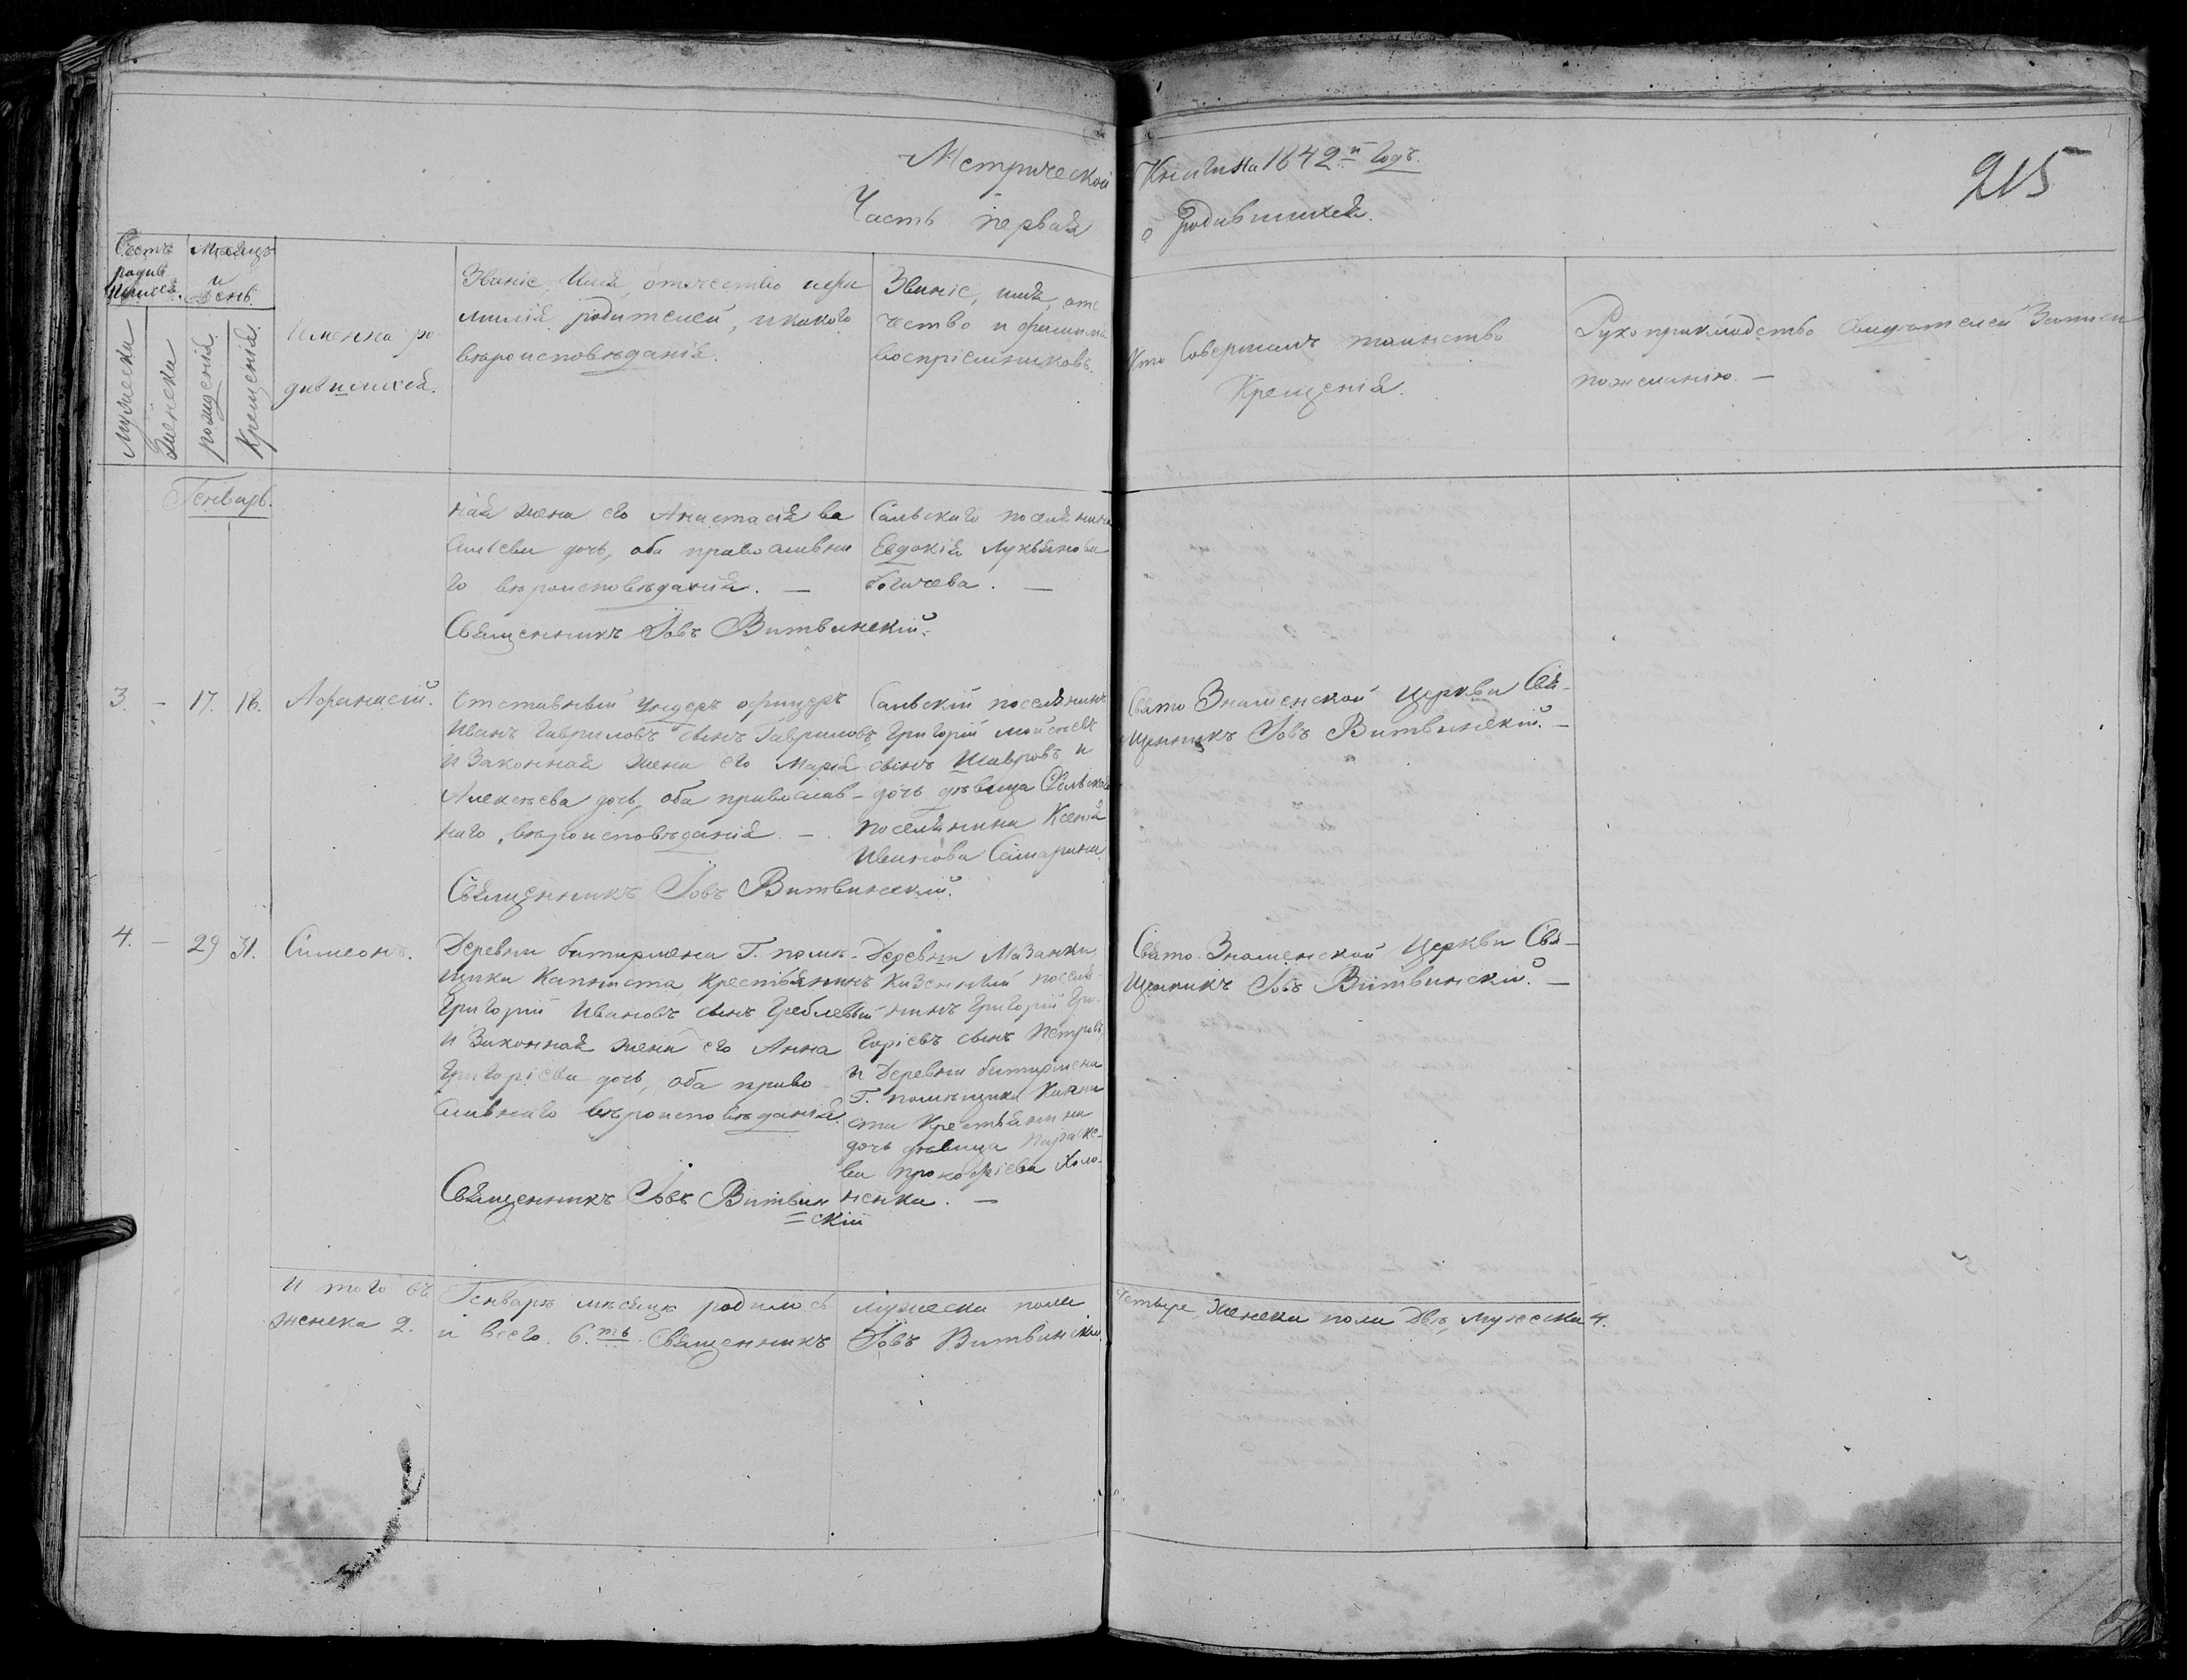 Метрической Книги на 1842й Годъ.
215
Часть первая о родившихся.
Счетъ родив шихся.
Мѣсяцъ и День.
Мужеска
Женска
рожденія.
Крещенія.
Имена ро
дившихся.
Званіе, Имя, отечество и фа
милія родителей, и какого
вѣроисповѣданія.
Званіе, имя, оте
чество и фамилія
воспріемниковъ.
Кто Совершалъ таинство
Крещенія.
Рукоприкладство свидѣтелей Записи
по желанію. —
Генварь.
ная жена его Анастасія ва
сильева дочь, оба православна
го вѣроисповѣданія. —
Священникъ Іовъ Витвинскій.
Сальскаго поселянина
Евдокія Лукьянова
. —
3. — 17. 18. Афанасій.
Отставный ундеръ офицеръ
Иванъ Гавриловъ сынъ Гавриловъ
и Законная жена его Марія
Алексѣева дочь, оба православ-
наго, вѣроисповѣданія. —
Священникъ Іовъ Витвинскій.
Сальскій поселянинъ
Григорій Мойсеевъ
сынъ Шавровъ и
дочь дѣвица Сальскаго
поселянина Ксенія
Иванова Самарина.
Свято Знаменской Церкви Свя-
щенникъ Іовъ Витвинскій. —
4. — 29 31. Симеонъ.
Деревни битирмена Г. помѣ-
щика Капниста, Крестьянинъ
Григорій Ивановъ сынъ Греблевый
и Законная жена его Анна
Григоріева дочь, оба право
славнаго вѣроисповѣданія.
Священникъ Іовъ Витвин
=скій
Деревни Мазанки,
Казенный поселя-
нинъ Григорій Гри-
горіевъ сынъ Петровъ,
и Деревни битирмена
Г. помѣщика Капни
ста Крестьянина
дочь дѣвица Параске-
ва прокофіева Холо-
ненка. —
Свято-Знаменской Церкви Свя-
щенникъ Іовъ Витвинскій. —
И того въ Генварѣ мѣсяцѣ родилось мужеска пола четыре, Женска пола Двѣ, мужеска 4.
женска 2. и всего 6.ть Священникъ Іовъ Витвинскій.